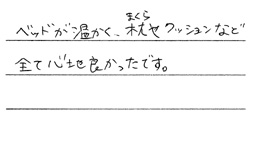 ベッドが温かく、枕やクッションなど
全て心地良かったです。